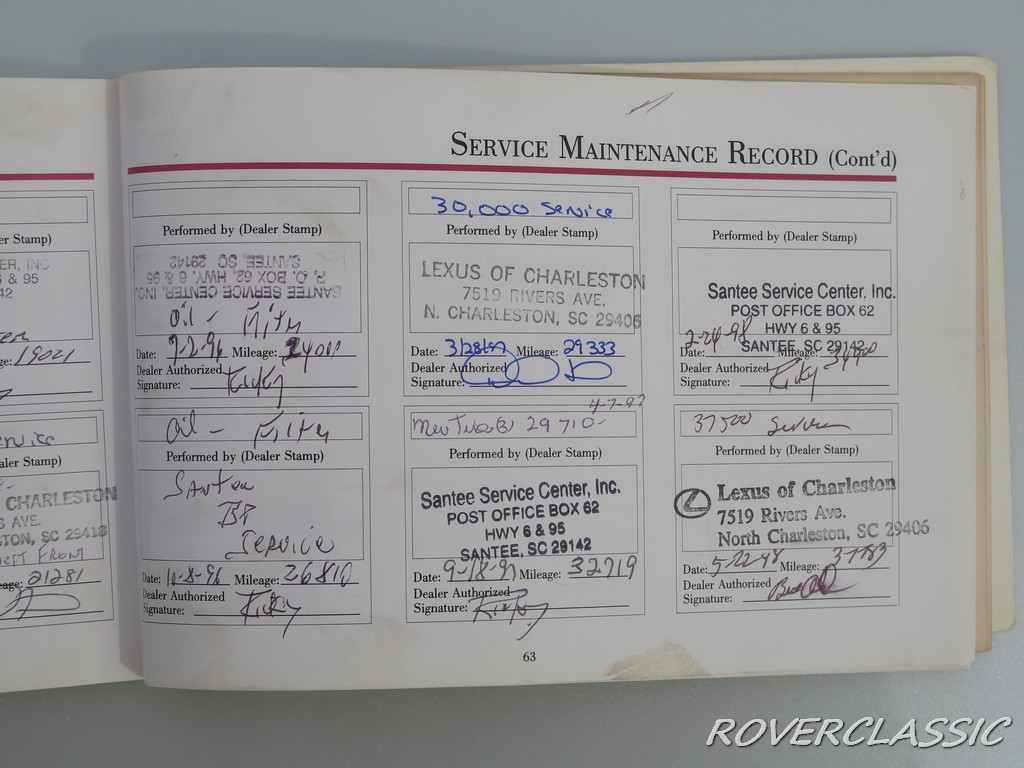 SERVICE MAINTENANCE RECORD (Cont'd)
er Stamp)
ER, INC
6 & 95
42
ge: 19021
ervice
aler Stamp)
CHARLESTON
S AVE.
TON, SC 29418
LEFT FRONT
eage: 21281
Performed by (Dealer Stamp)
SANTEE SERVICE CENTER, INC.
P. O. BOX 62, HWY. 6 & 95
SANTEE, SC 29142
Oil - Filter
Date: 7-2-96 Mileage: 24000
Dealer Authorized
Signature: Ricky
Oil - Filter
Performed by (Dealer Stamp)
Santee
BP
Service
Date: 10-8-96 Mileage: 26810
Dealer Authorized
Signature: Ricky
30,000 Service
Performed by (Dealer Stamp)
LEXUS OF CHARLESTON
7519 RIVERS AVE.
N. CHARLESTON, SC 29406
Date: 3/28/97 Mileage: 29333
Dealer Authorized
Signature:
4-7-97
New Tires 29 710-
Performed by (Dealer Stamp)
Santee Service Center, Inc.
POST OFFICE BOX 62
HWY 6 & 95
SANTEE, SC 29142
Date: 9-18-97 Mileage: 32719
Dealer Authorized
Signature: Ricky
Performed by (Dealer Stamp)
Santee Service Center, Inc.
POST OFFICE BOX 62
HWY 6 & 95
SANTEE, SC 29142
Date: 2-24-98 Mileage:
Dealer Authorized
Signature: Ricky
37500 Service
Performed by (Dealer Stamp)
Lexus of Charleston
7519 Rivers Ave.
North Charleston, SC 29406
Date: 5-22-98 Mileage: 37783
Dealer Authorized
Signature:
63
ROVERCLASSIC